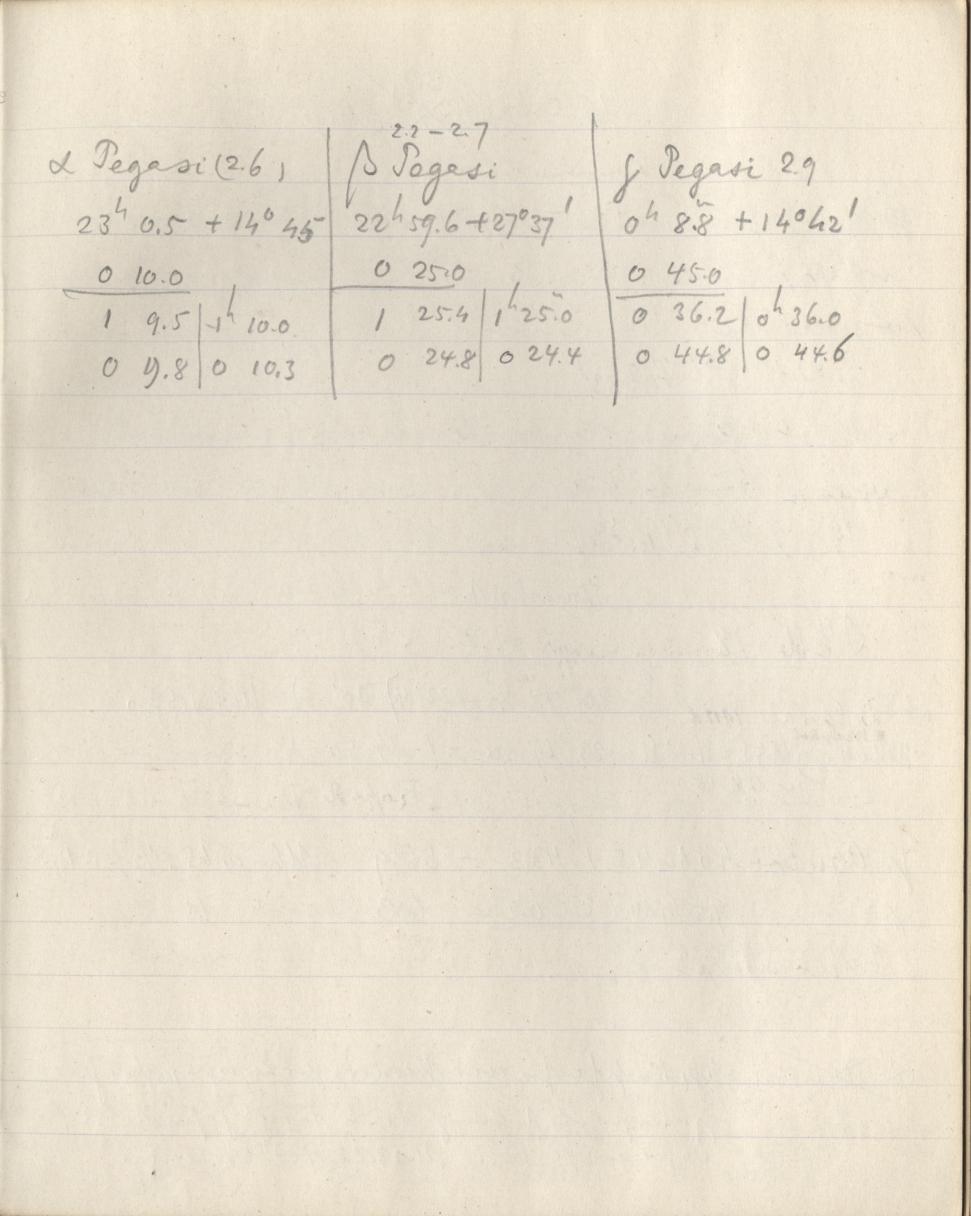 α Pegasi (2.6)
23ʰ 0.5 + 14° 45
0 10.0
1 9.5 | 1ʰ 10.0
0 9.8 | 0 10.3
2.2 – 2.7
β Pegasi
22ʰ 59.6 + 27° 37'
0 25.0
1 25.4 | 1ʰ 25.0
0 24.8 | 0 24.4
γ Pegasi 2.9
0ʰ 8.8ᵐ + 14° 42'
0 45.0
0 36.2 | 0ʰ 36.0
0 44.8 | 0 44.6